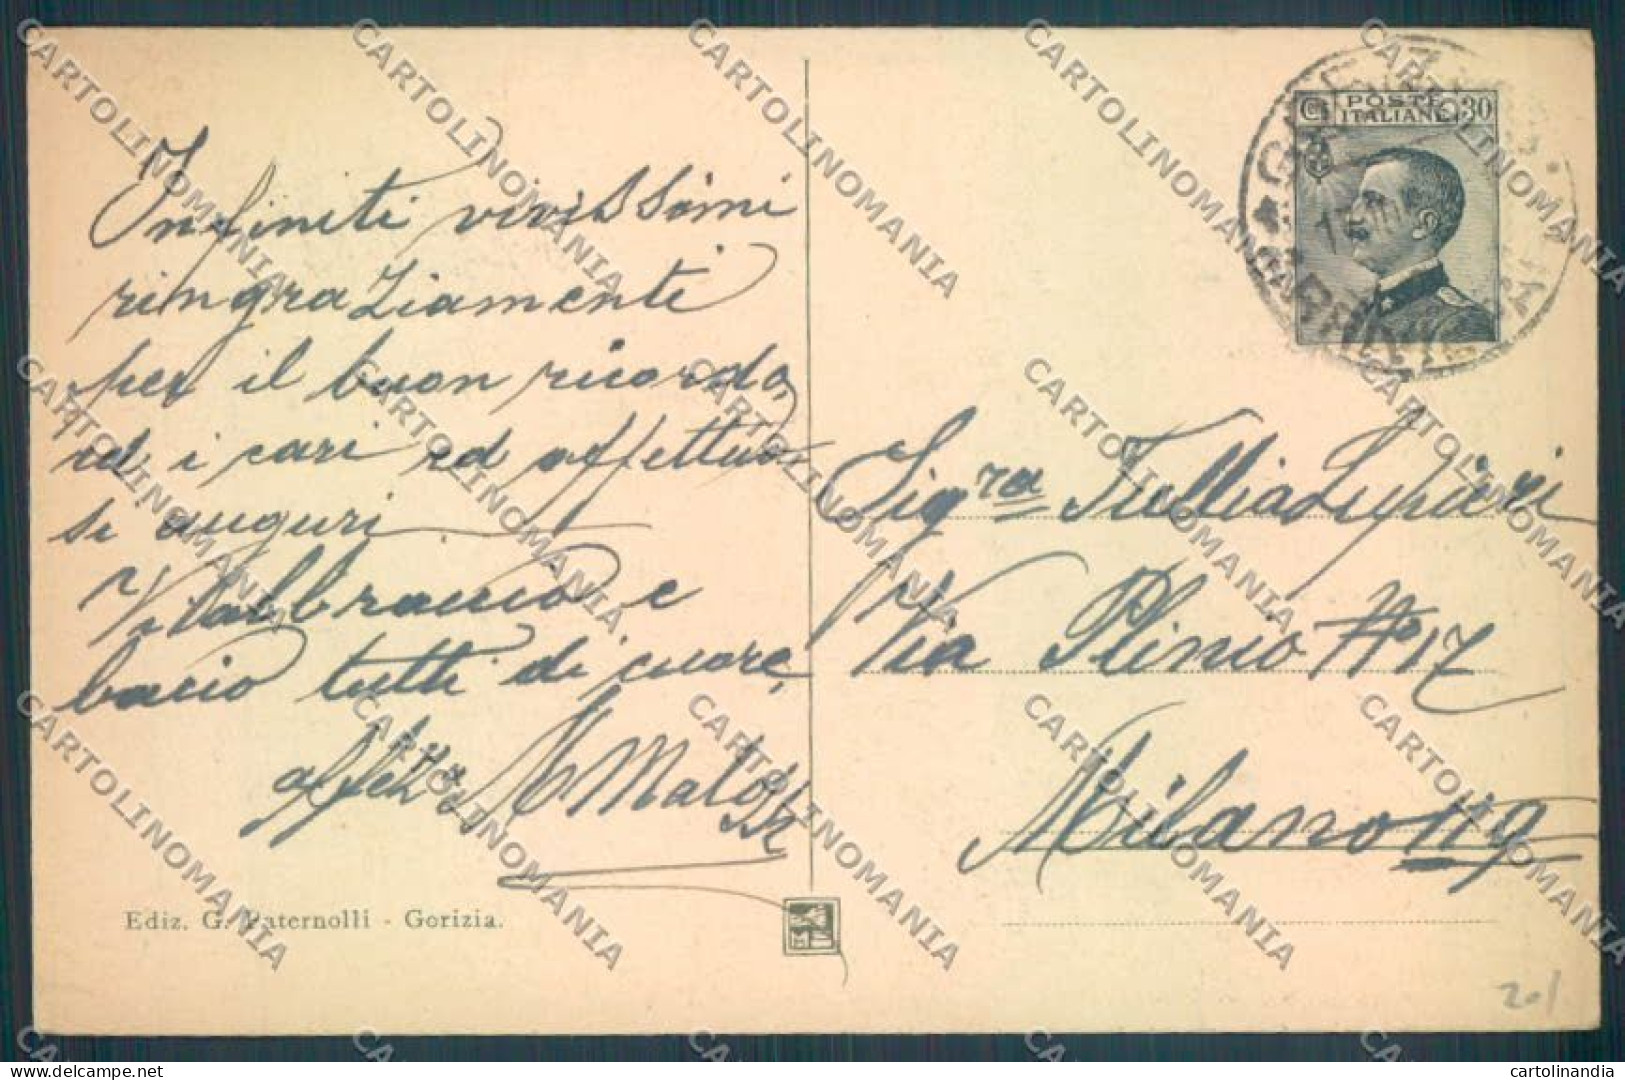 Infiniti vivissimi
ringraziamenti
per il buon ricordo,
ed i cari ed affettuo-
si auguri.
Vi abbraccio e
bacio tutti di cuore,
Ediz. G. Paternolli - Gorizia.
Cmi POSTE ITALIANE 30
Sigra Tullia
Via Plinio No 17
Milano
201
CARTOLINOMANIA
cartolinandia